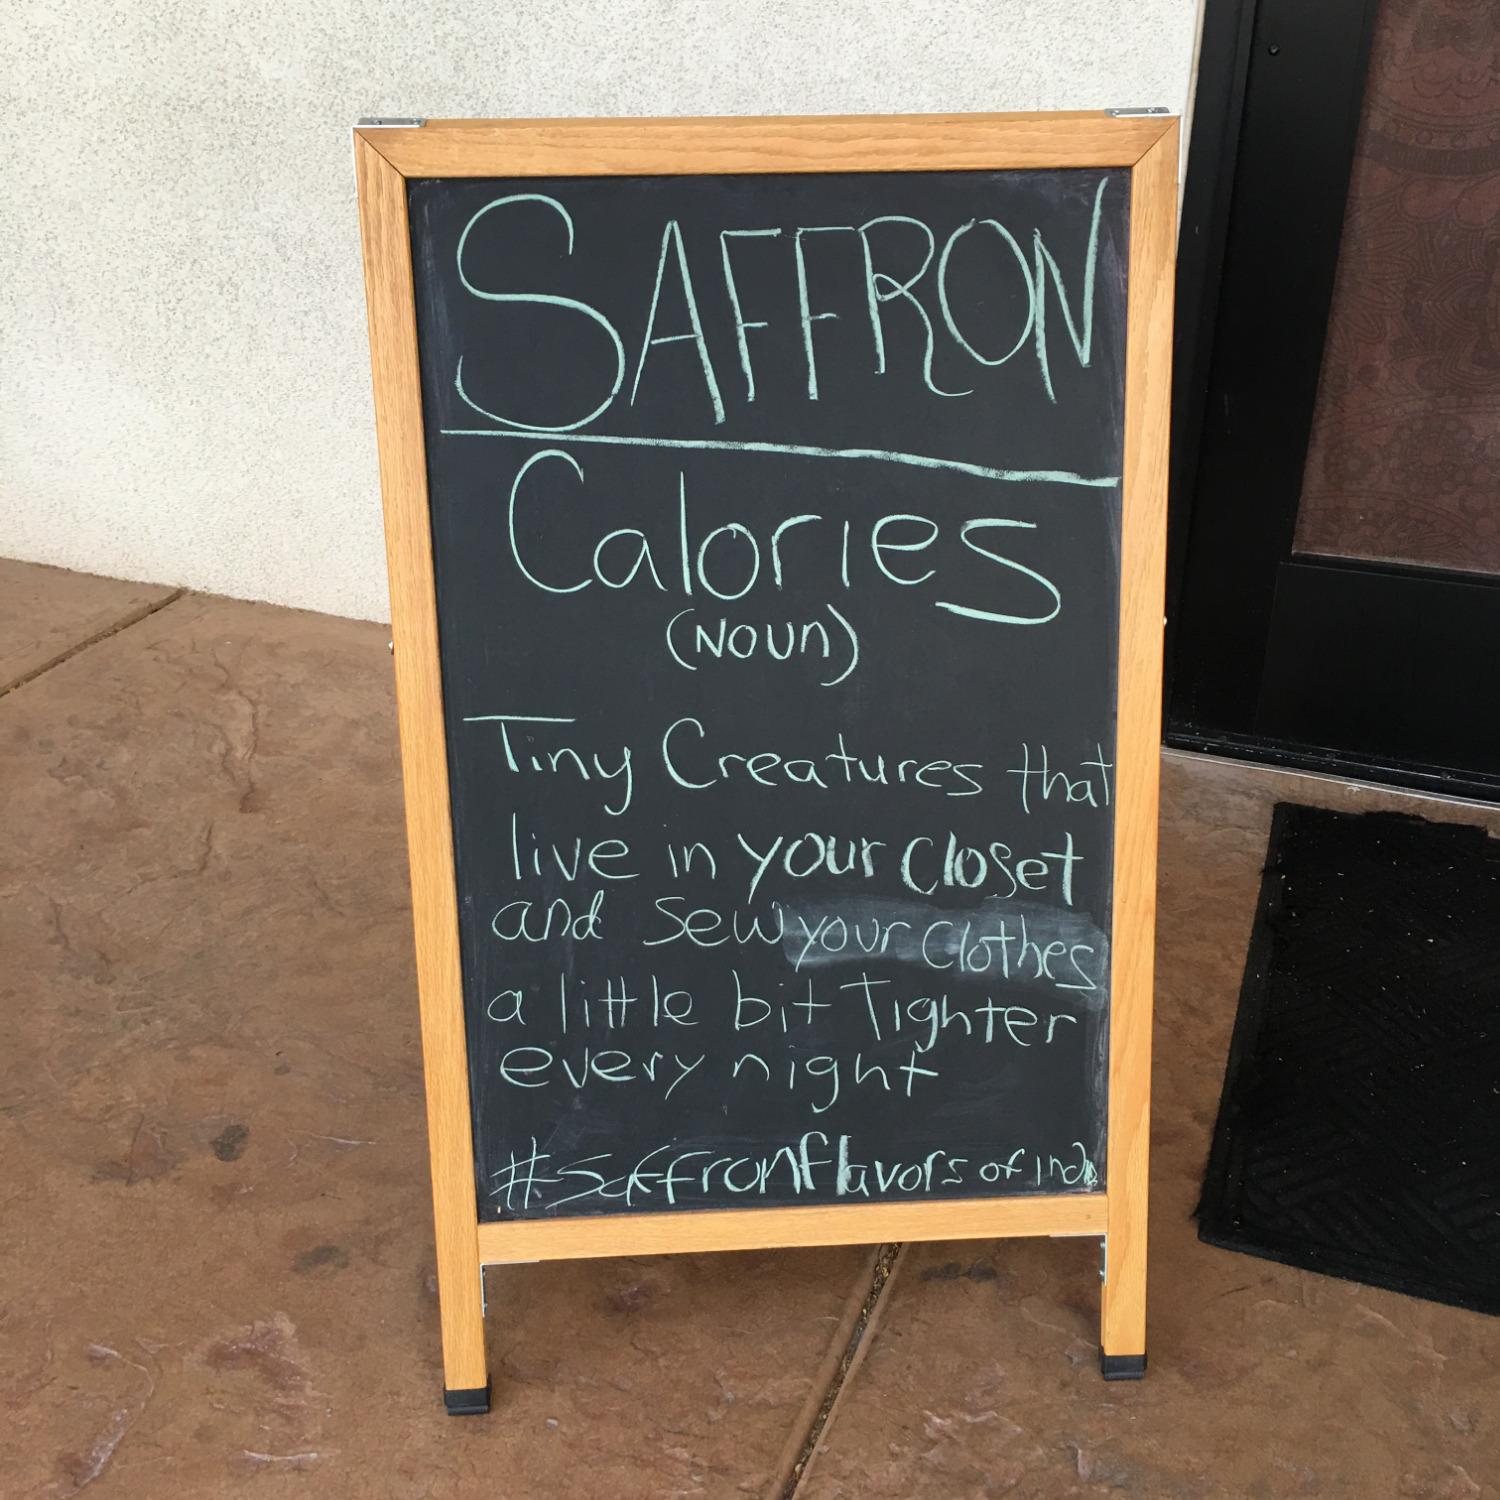 SAFFRON
Calories
(NOUN)
Tiny Creatures that
live in your closet
and sew your clothes
a little bit Tighter
every night
#saffronflavors of India